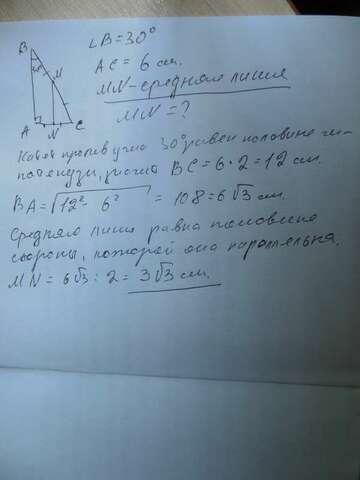 B
30°
M
A N C
∠B=30°
AC = 6 см.
MN-средняя линия
MN=?
Катет против угла 30° равен половине ги-
потенузы, значит BC=6·2=12 см.
BA=√12²-6² = 108=6√3 см.
Средняя линия равна половине
стороны, которой она параллельна.
MN=6√3:2=3√3 см.